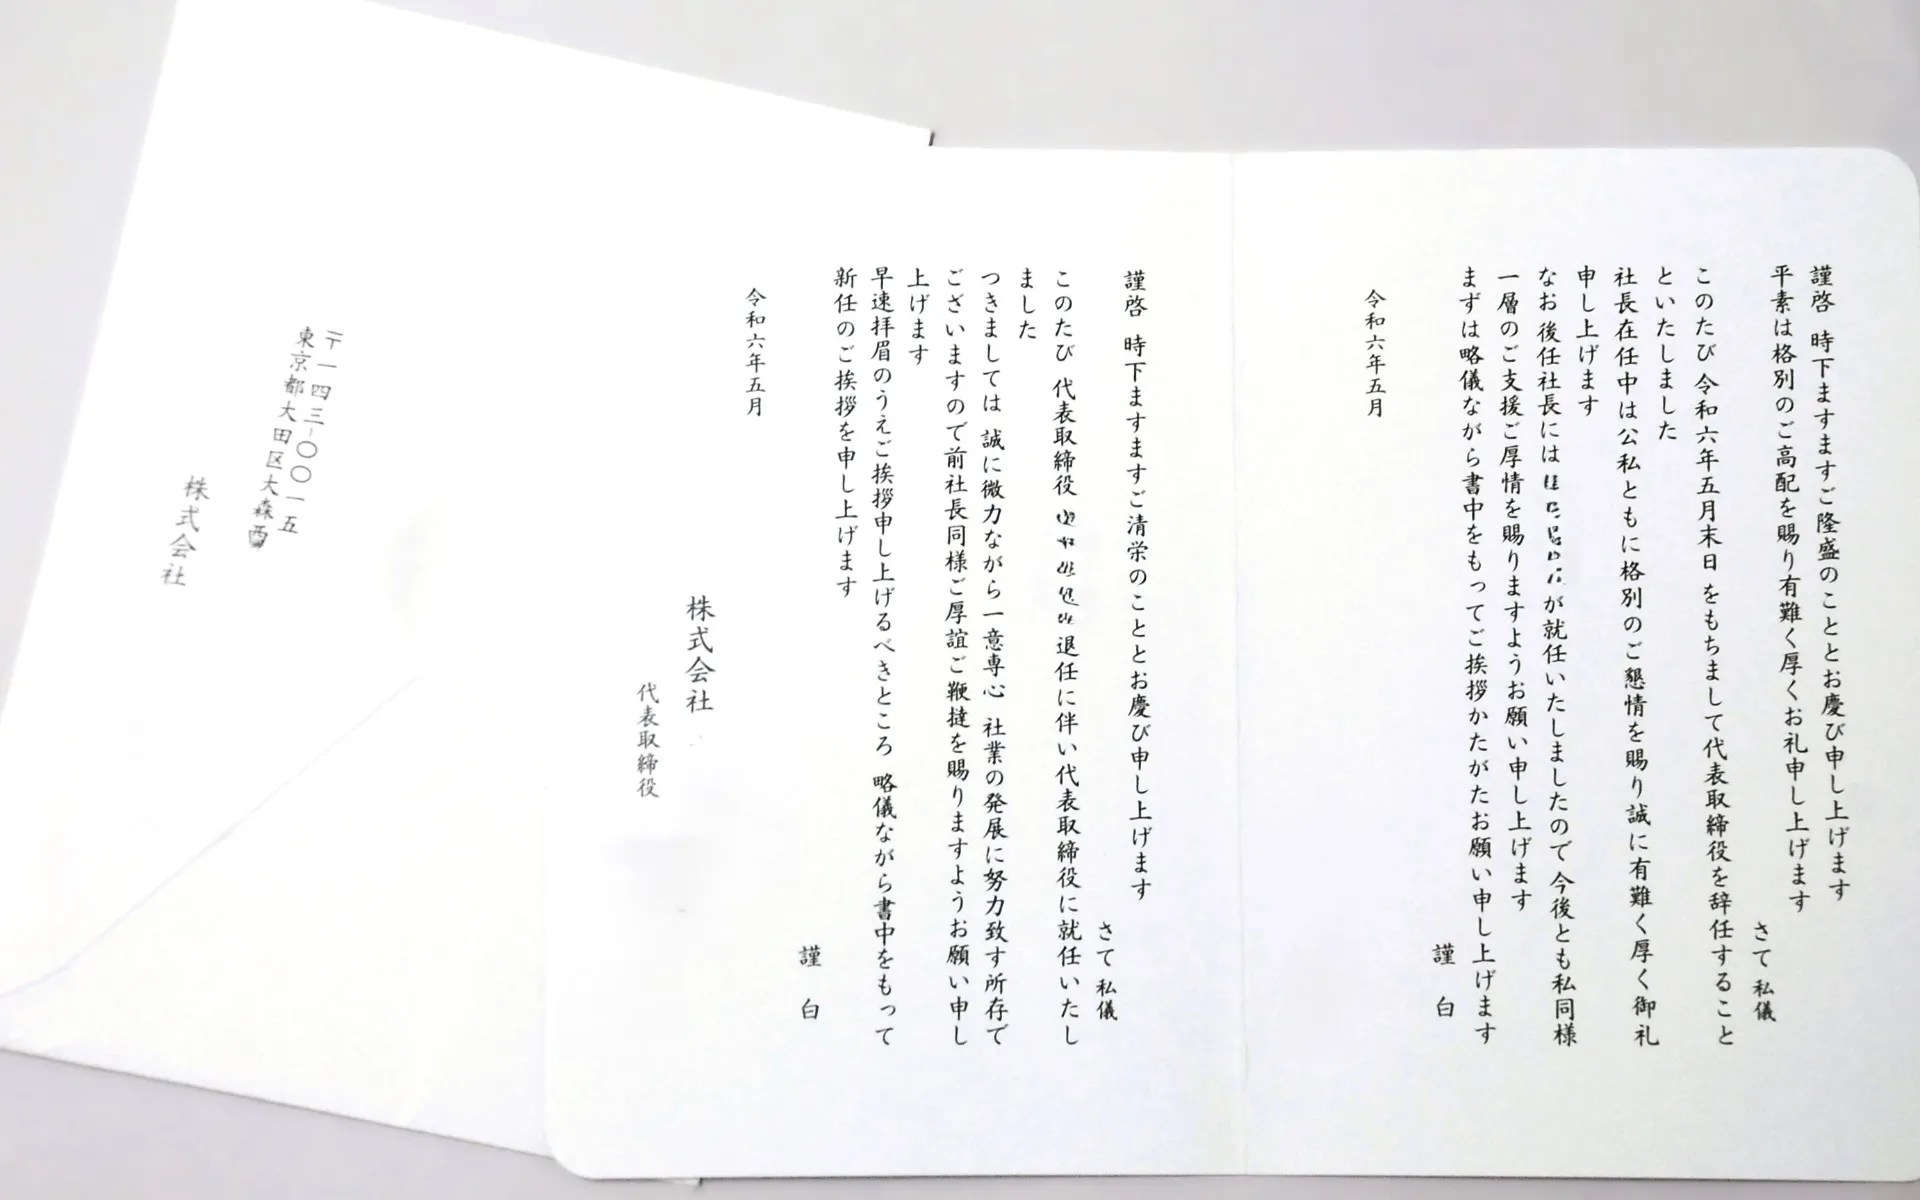 謹啓 時下ますますご隆盛のこととお慶び申し上げます
平素は格別のご高配を賜り有難く厚くお礼申し上げます
さて 私儀
このたび 令和六年五月末日 をもちまして代表取締役を辞任すること
といたしました
社長在任中は公私ともに格別のご懇情を賜り誠に有難く厚く御礼
申し上げます
なお 後任社長には が就任いたしましたので今後とも私同様
一層のご支援ご厚情を賜りますようお願い申し上げます
まずは略儀ながら書中をもってご挨拶かたがたお願い申し上げます
謹 白
令和六年五月
謹啓 時下ますますご清栄のこととお慶び申し上げます
さて 私儀
このたび 代表取締役 退任に伴い代表取締役に就任いたし
ました
つきましては 誠に微力ながら一意専心 社業の発展に努力致す所存で
ございますので前社長同様ご厚誼ご鞭撻を賜りますようお願い申し
上げます
早速拝眉のうえご挨拶申し上げるべきところ 略儀ながら書中をもって
新任のご挨拶を申し上げます
謹 白
令和六年五月
株式会社
代表取締役
〒一四三-〇〇一五
東京都大田区大森西
株式会社